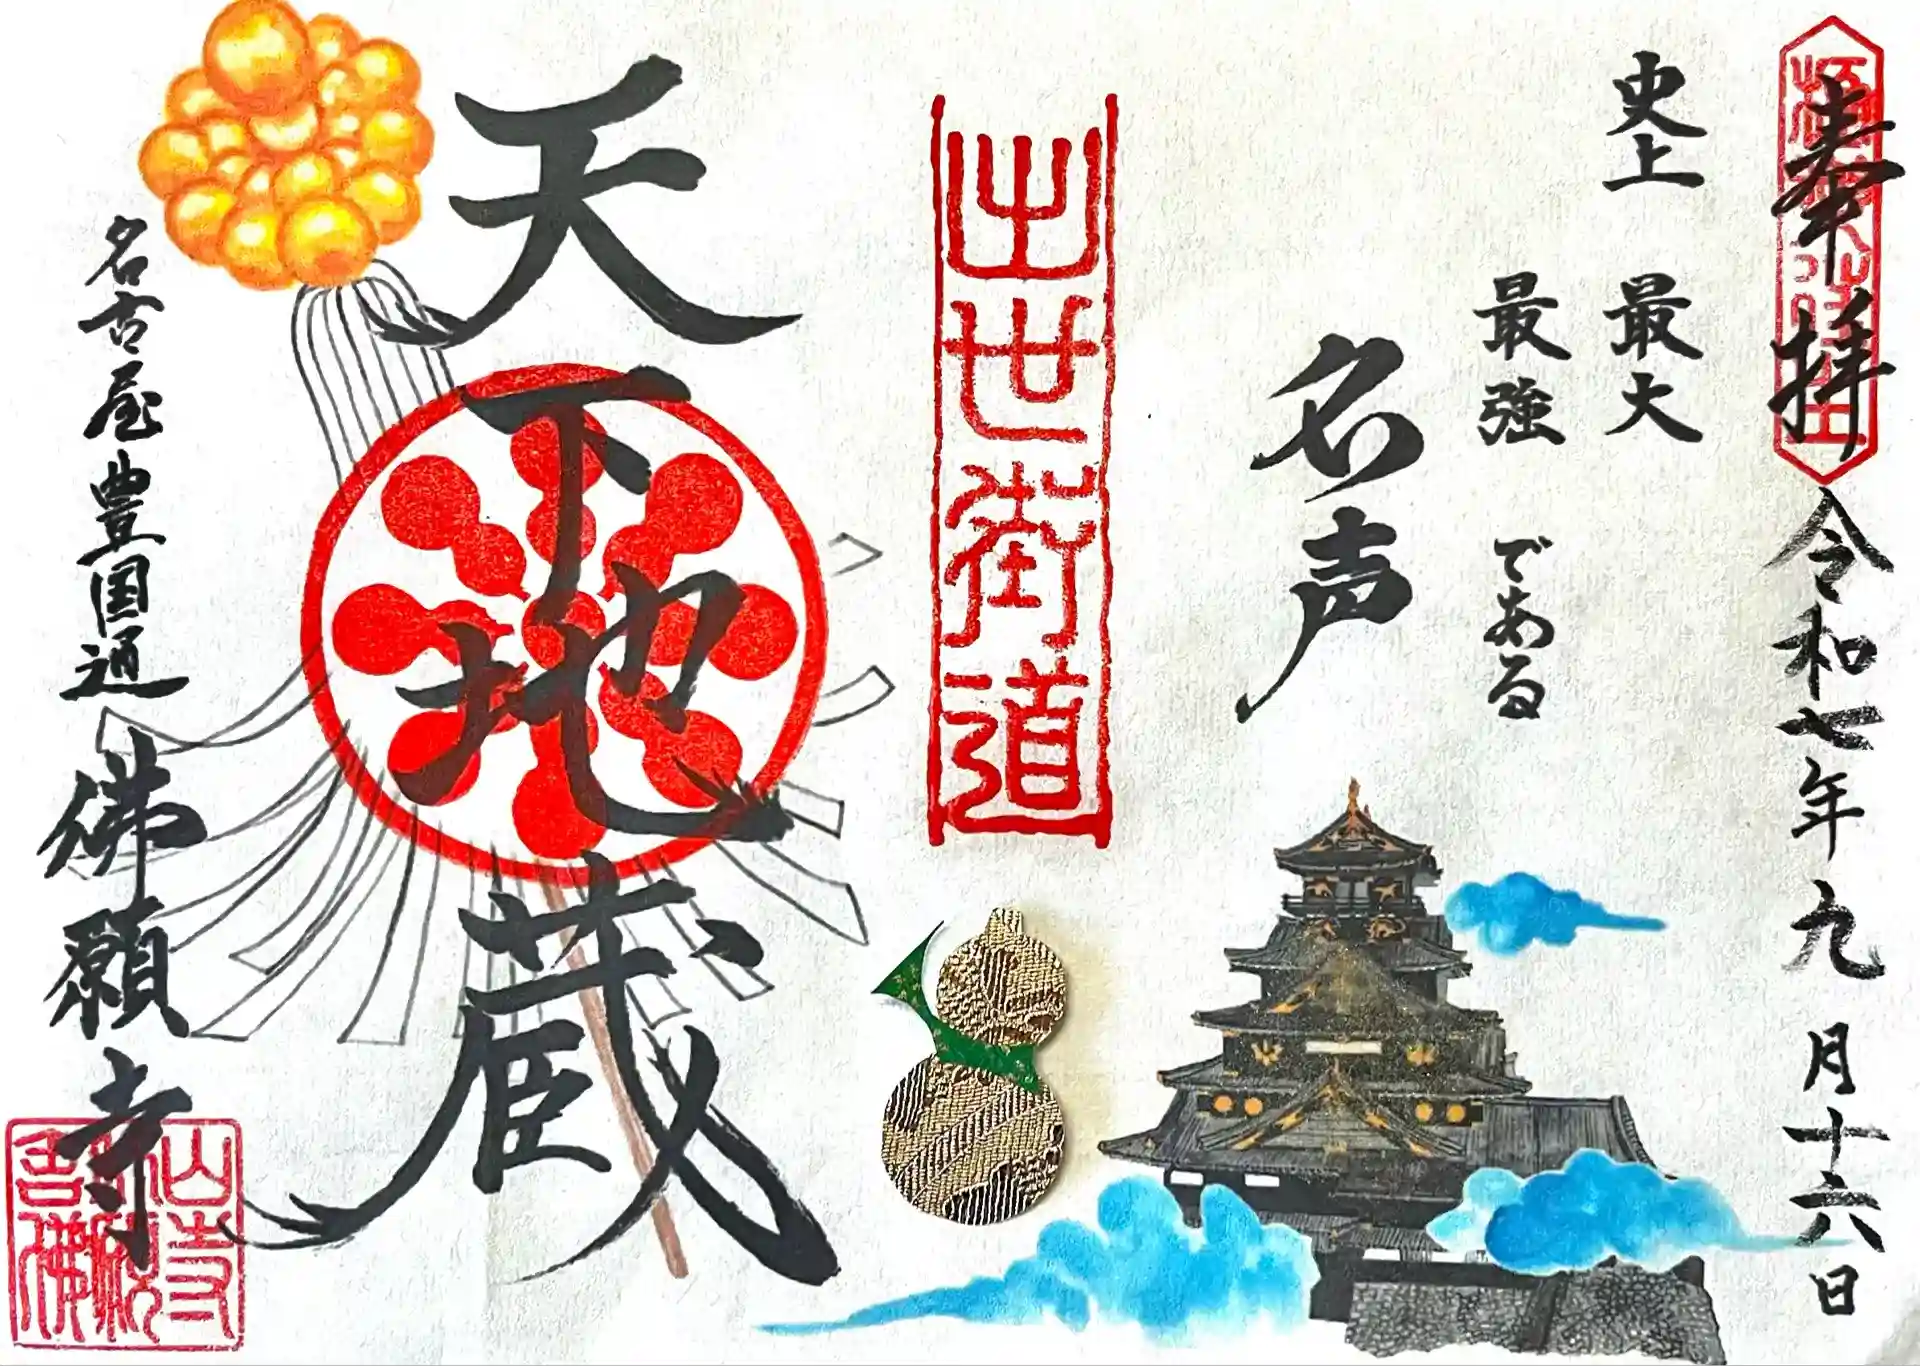 奉拝 令和七年九月十六日
史上 最大
最強 である
名声
出世街道
天下地蔵
名古屋豊国通 佛願寺